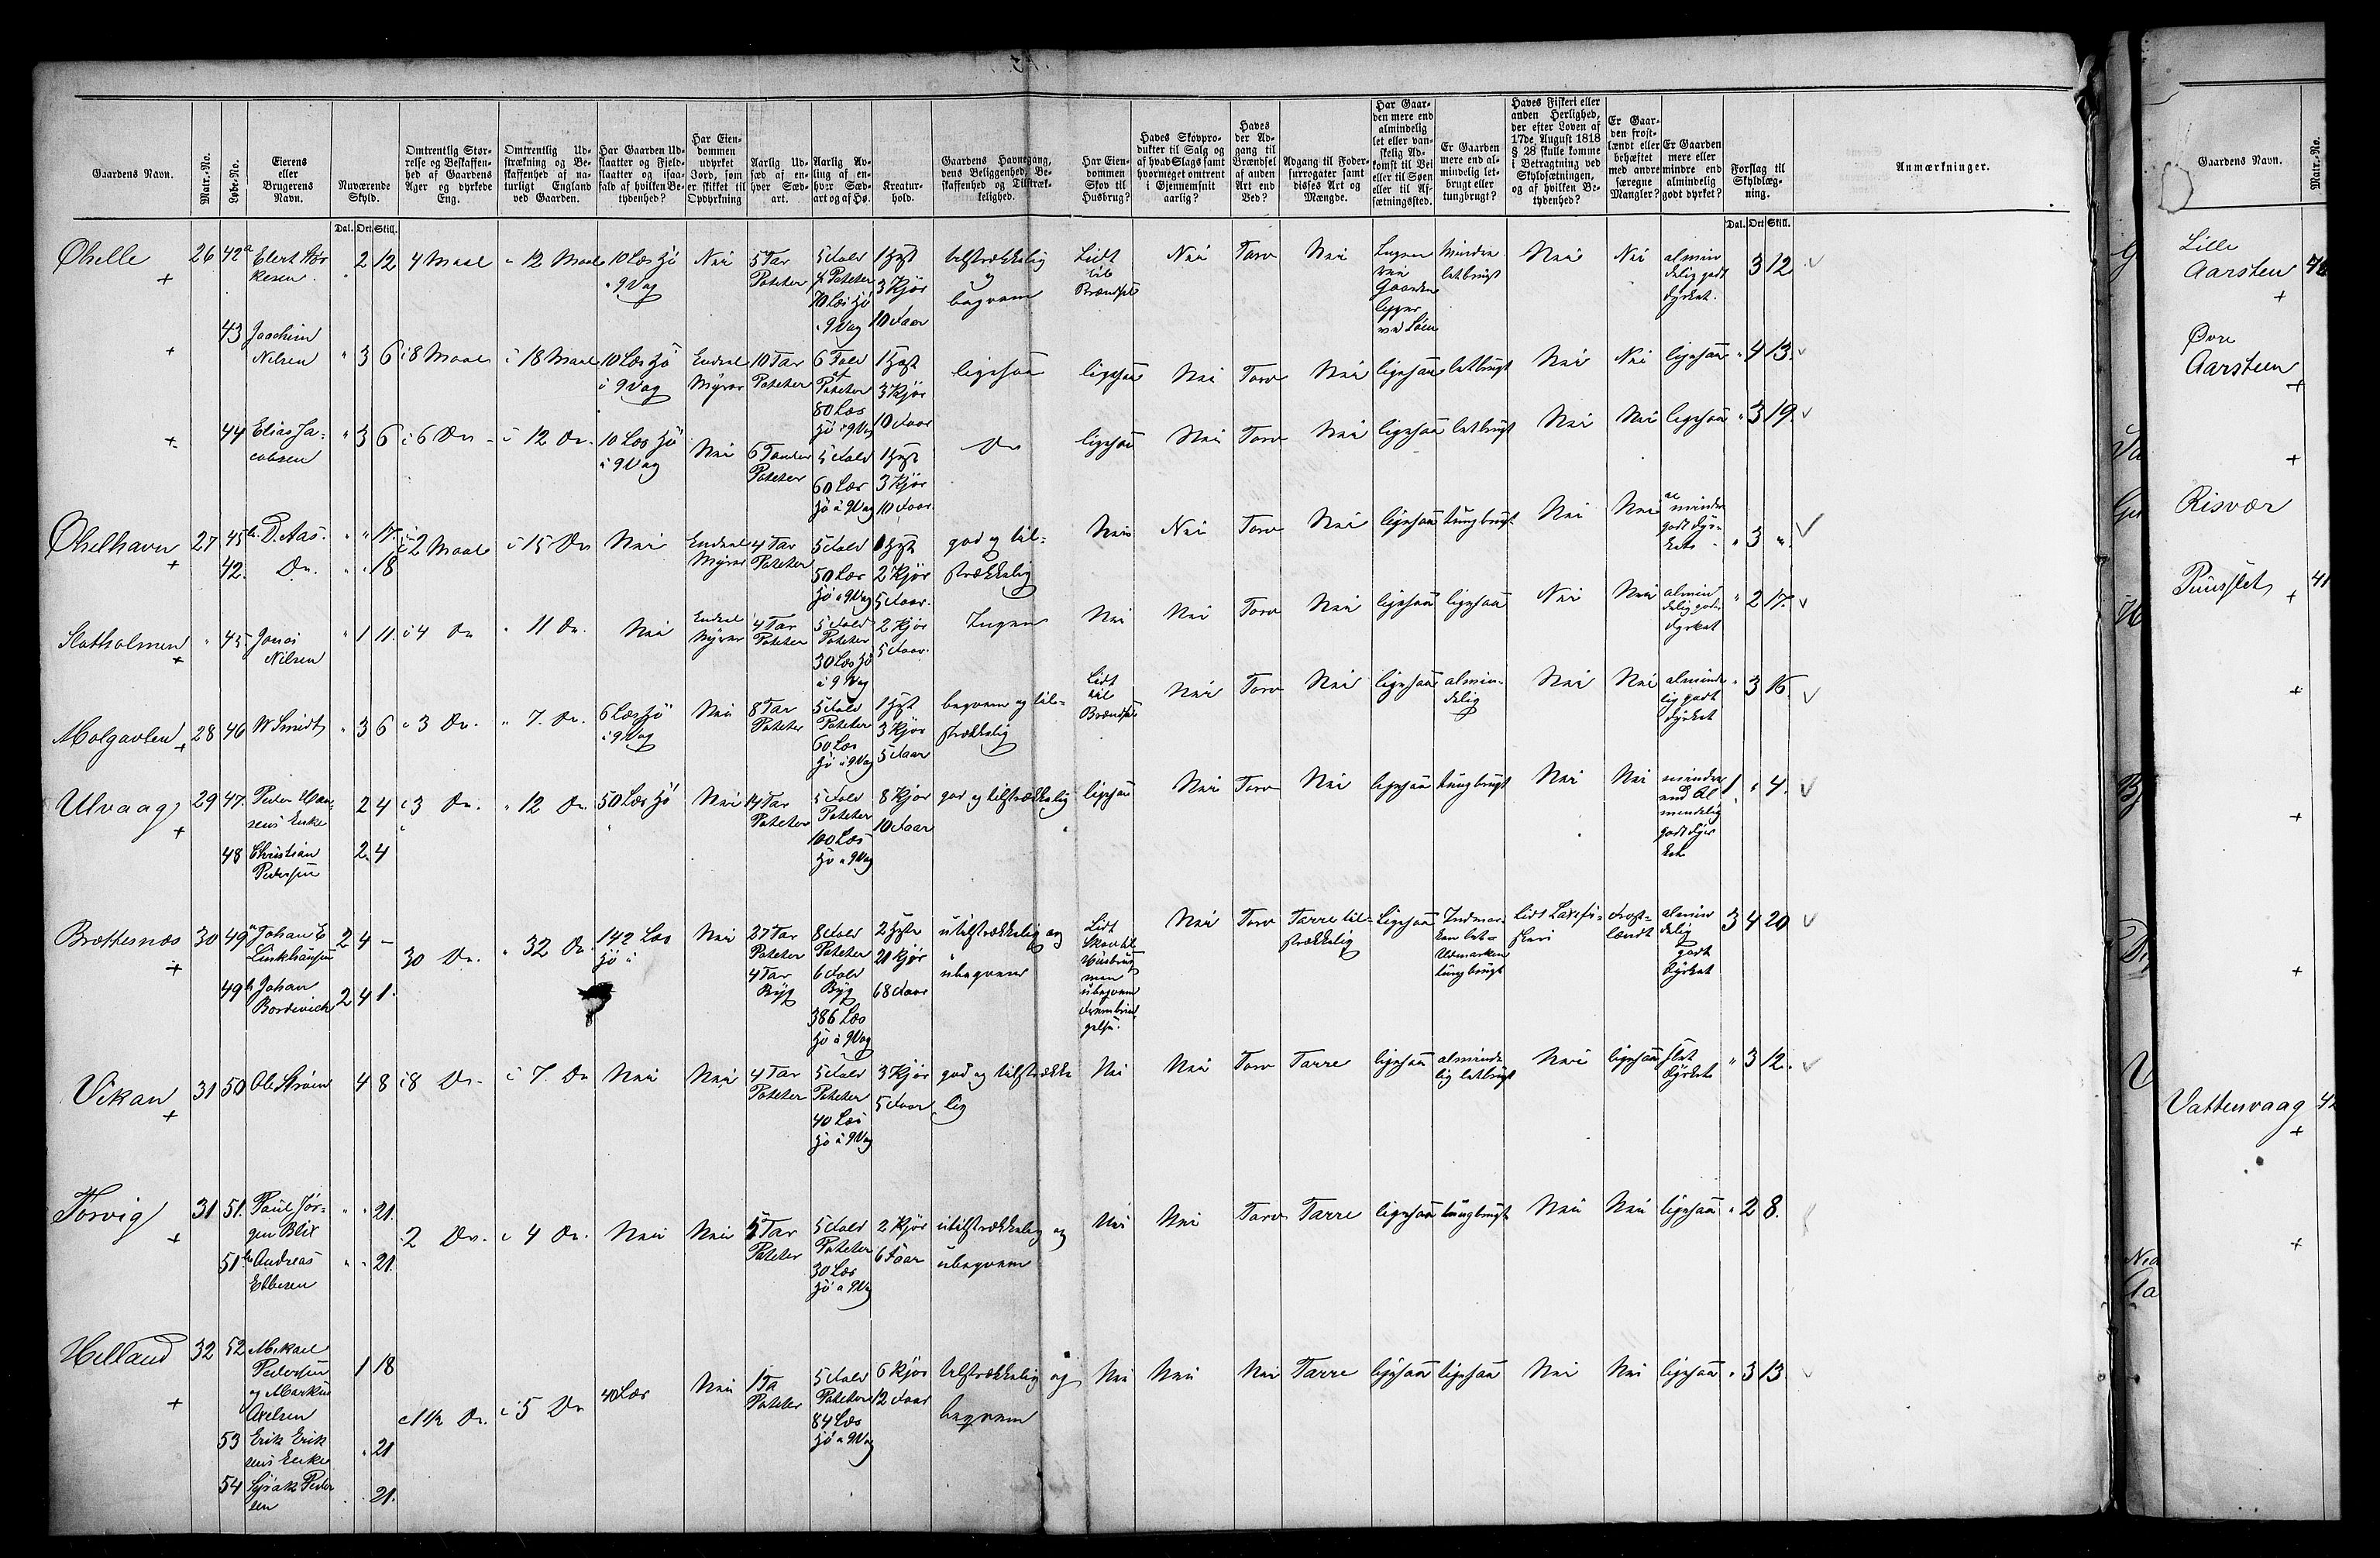 Gaardens Navn.
Matr.-No.
Løbe-No.
Eierens eller Brugerens Navn.
Nuværende Skyld.
Omtrentlig Størrelse og Beskaffenhed af Gaardens Ager og dyrkede Eng.
Omtrentlig Udstrækning og Beskaffenhed af naturligt England ved Gaarden.
Har Gaarden Udslaatter og Fjeldslaatter og isaafald af hvilken Betydenhed?
Har Eiendommen udyrket Jord, som er skikket til Opdyrkning
Aarlig Udsæd af enhver Sædart.
Aarlig Avling af enhver Sædart og af Hø.
Kreaturhold.
Gaardens Havnegang, dens Beliggenhed, Beskaffenhed og Tilstrækkelighed.
Har Eiendommen Skov til Husbrug?
Haves Skovprodukter til Salg og af hvad Slags samt hvormeget omtrent i Gjennemsnit aarlig?
Haves der Adgang til Brændsel af anden Art end Ved?
Adgang til Fodersurrogater samt disses Art og Mængde.
Har Gaarden mere end almindelig let eller vanskelig Adkomst til Vei eller til Søen eller til Afsætningssted.
Er Gaarden mere end almindelig letbrugt eller tungbrugt?
Haves Fiskeri eller anden Herlighed, der efter Loven af 17de August 1818 § 28 skulle komme i Betragtning ved Skyldsætningen, og af hvilken Betydenhed?
Er Gaarden frostlændt eller behæftet med andre særegne Mangler?
Er Gaarden mere eller mindre end almindelig godt dyrket?
Forslag til Skyldlægning.
Anmærkninger.
Dal. Ort Skill.
Dal. Ort Skill.
Øhelle 26 42a Elert Kesen 2 12 4 Maal 12 Maal 10 Læs Hø 9 Vog Nei 5 Tdr Poteter 5 Fold Poteter 70 Læs Hø 9 Vog 1 Hest 3 Kjør 10 Faar tilstrækkelig og beqvem Lidt til Brændsel Nei Torv Nei Ingen Vei Gaarden ligger ved Søen Mindre letbrugt Nei Nei almindelig godt dyrket. 3 12
43 Joachim Nilsen 3 6 8 Maal 18 Maal 10 Læs Hø 9 Vog Endeel Myrer 10 Tdr Poteter 6 Fold af Poteter 80 Læs Hø 9 Vog 1 Hest 3 Kjør 10 Faar ligesaa ligesaa Nei Torv Nei ligesaa letbrugt Nei Nei ligesaa 4 13
44 Elias Jacobsen 3 6 6 Do 12 Do. 10 Læs Hø 9 Vog Nei 6 Tønder Poteter 5 Fold 60 Læs Hø à 9 Vog 1 Hest 3 Kjør 10 Faar Do ligesaa Nei Torv Nei ligesaa letbrugt Nei Nei ligesaa 3 19
Øhelhavn 27 45b D. Aas. 17 2 Maal 15 Do Nei Endeel Myrer 4 Tdr Poteter 5 Fold 50 Læs Hø 9 Vog 1 Hest 2 Kjør 5 Faar. god og tilstrækkelig Nei Nei Torv Nei ligesaa tungbrugt Nei Nei mindre godt dyrket 3
42. Do. 18
Slotholmen 45 Jonas Nilsen 1 11. 4 Do 11 Do. Nei Endeel Myrer 4 Tdr Poteter 5 Fold Poteter 30 Læs Hø à 9 Vog 2 Kjør 5 Faar. Ingen Nei Nei Torv Nei ligesaa ligesaa Nei Nei almindelig godt dyrket 2 17
Molgavlen 28 46 W Smidt 3 6 3 Do. 7. Do. 6 Læs Hø 9 Vog Nei 8 Tdr Poteter 5 Fold Poteter 60 Læs Hø à 9 Vog 1 Hest 3 Kjør 5 Faar beqvem og tilstrækkelig Lidt til Brændsel Nei Torv Nei ligesaa almindelig Nei Nei almindelig godt dyrket 3 16
Ulvaag 29 47. Peder Hansens Enke 2 4 3 Do. 12 Do 50 Læs Hø Nei 14 Tdr Poteter 5 Fold Poteter 100 Læs Hø 9 Vog 8 Kjør 10 Faar god og tilstrækkelig ligesaa Nei Torv Nei ligesaa tungbrugt Nei Nei mindre end almindelig godt dyrket 1 4.
48 Christian Pedersen 2 4
Brettesnæs 30 49a Johan E Linkhausen 2 4 - 30 Do. 32 Do 142 Læs Hø Nei 27 Tdr Poteter 4 Tdr Byg 8 Fold Poteter 6 Fold Byg 386 Læs Hø à 9 Vog 2 Heste 21 Kjør 68 Faar utilstrækkelig og ubeqvem Lidt Skov til Husbrug men ubeqvem Frembringelse. Nei Torv Tarre tilstrækkelig ligesaa Indmarken let Udmarken tungbrugt lidt Laxefiskeri frostlændt almindelig godt dyrket 3 4 20
49b Johan Bordevick 2 4 1.
Vikan 31 50 Ole Strøm 4 8 8 Do. 7. Do Nei Nei 4 Tdr Poteter 5 Fold Poteter 40 Læs Hø à 9 Vog 3 Kjør 5 Faar god og tilstrækkelig Nei Nei Torv Tarre ligesaa almindelig letbrugt Nei ligesaa slet dyrket 3 12.
Torvig 31 51. Paul Jørgen Blix 21. 2 Do. 4 Do. Nei Nei 5 Tdr Poteter 5 Fold Poteter 30 Læs Hø à 9 Vog 2 Kjør 6 Faar utilstrækkelig og ubeqvem Nei Nei Torv Tarre ligesaa tungbrugt Nei Nei ligesaa 2 8.
51b Andreas Ebbesen 21.
Helland 32 52 Mikael Pedersen og Markus Axelsen 1 18 1½ Do. 5 Do 40 Læs Nei 1 Td Poteter 5 Fold Poteter 84 Læs Hø à 9 Vog 6 Kjør 12 Faar tilstrækkelig og beqvem Nei Nei Nei Tarre ligesaa ligesaa Nei Nei ligesaa 3 13
53 Erik Eriksens Enke 21
54 Pedersen 21.
Gaardens Navn.
Matr.-No.
Lille Aarsteen
Øvre Aarsteen
Risvær
Puusslet 41
Vattensvaag 42